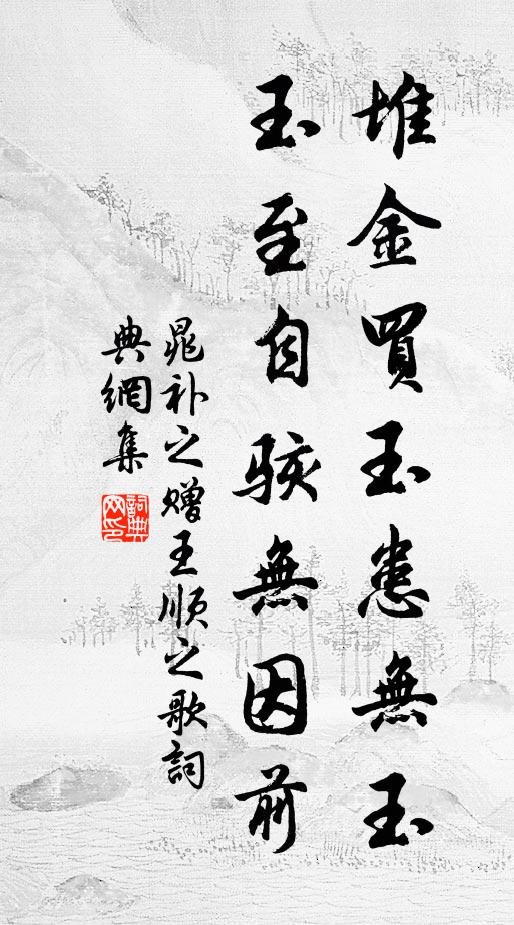 堆金買玉患無玉
玉至自駭無因前
晁补之赠王顺之歌詞
典網集
詞典網印